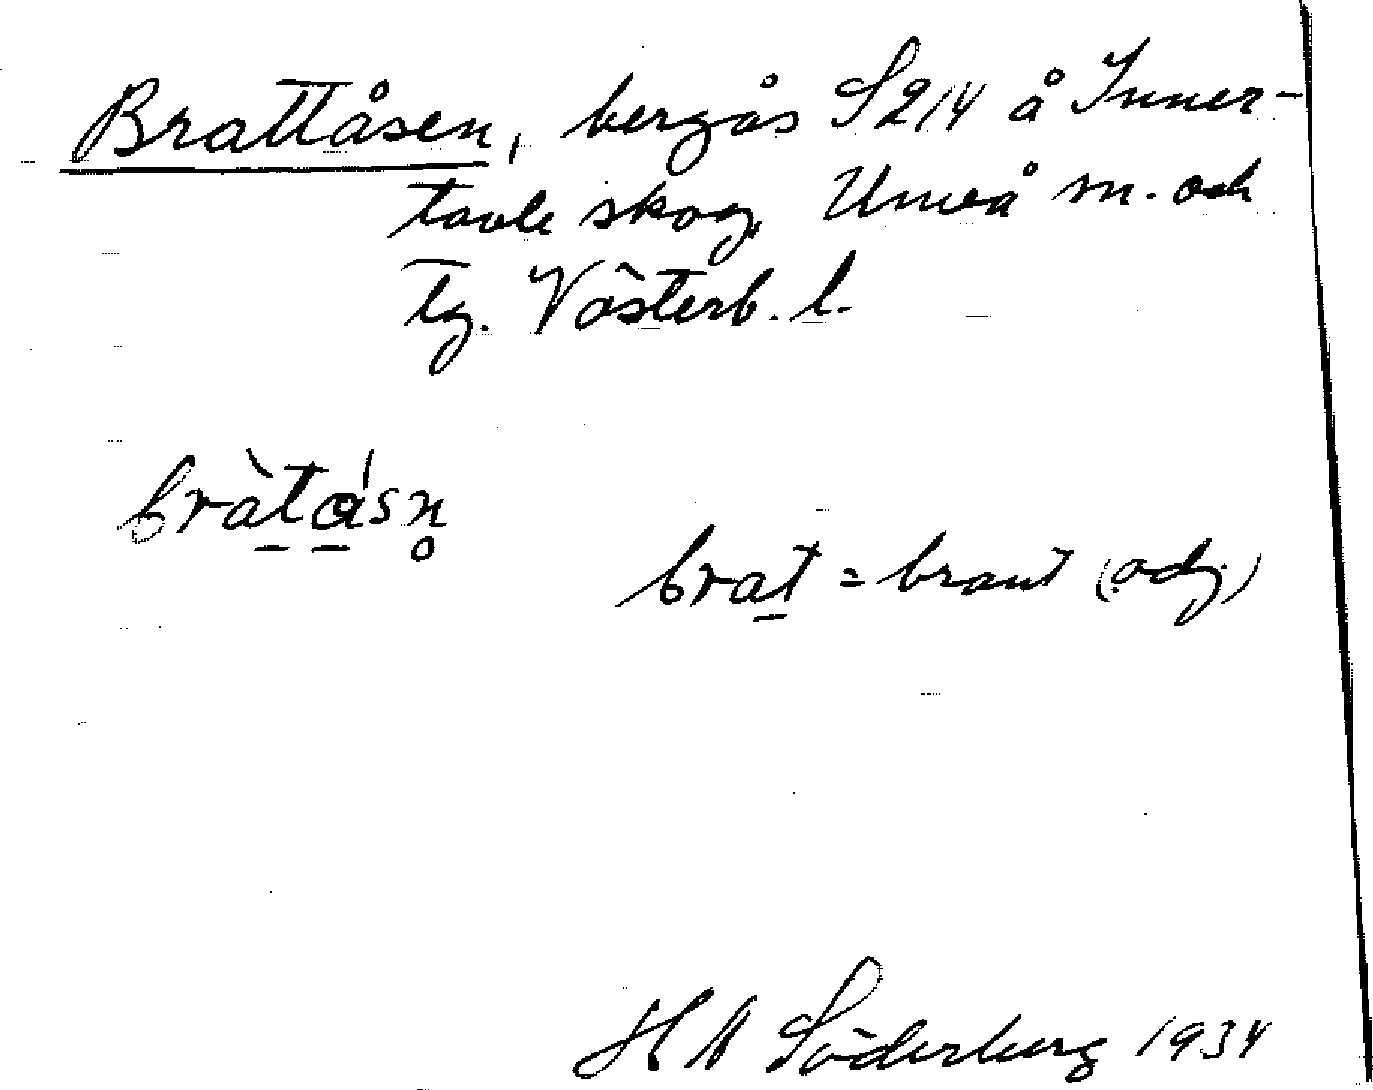 Brattåsen, bergås S2/4 å Inner-
tavle skog, Umeå sn. och
tg. Västerb. l.
bràtåsn̥
brat = brant (adj.)
H A Söderberg 1934